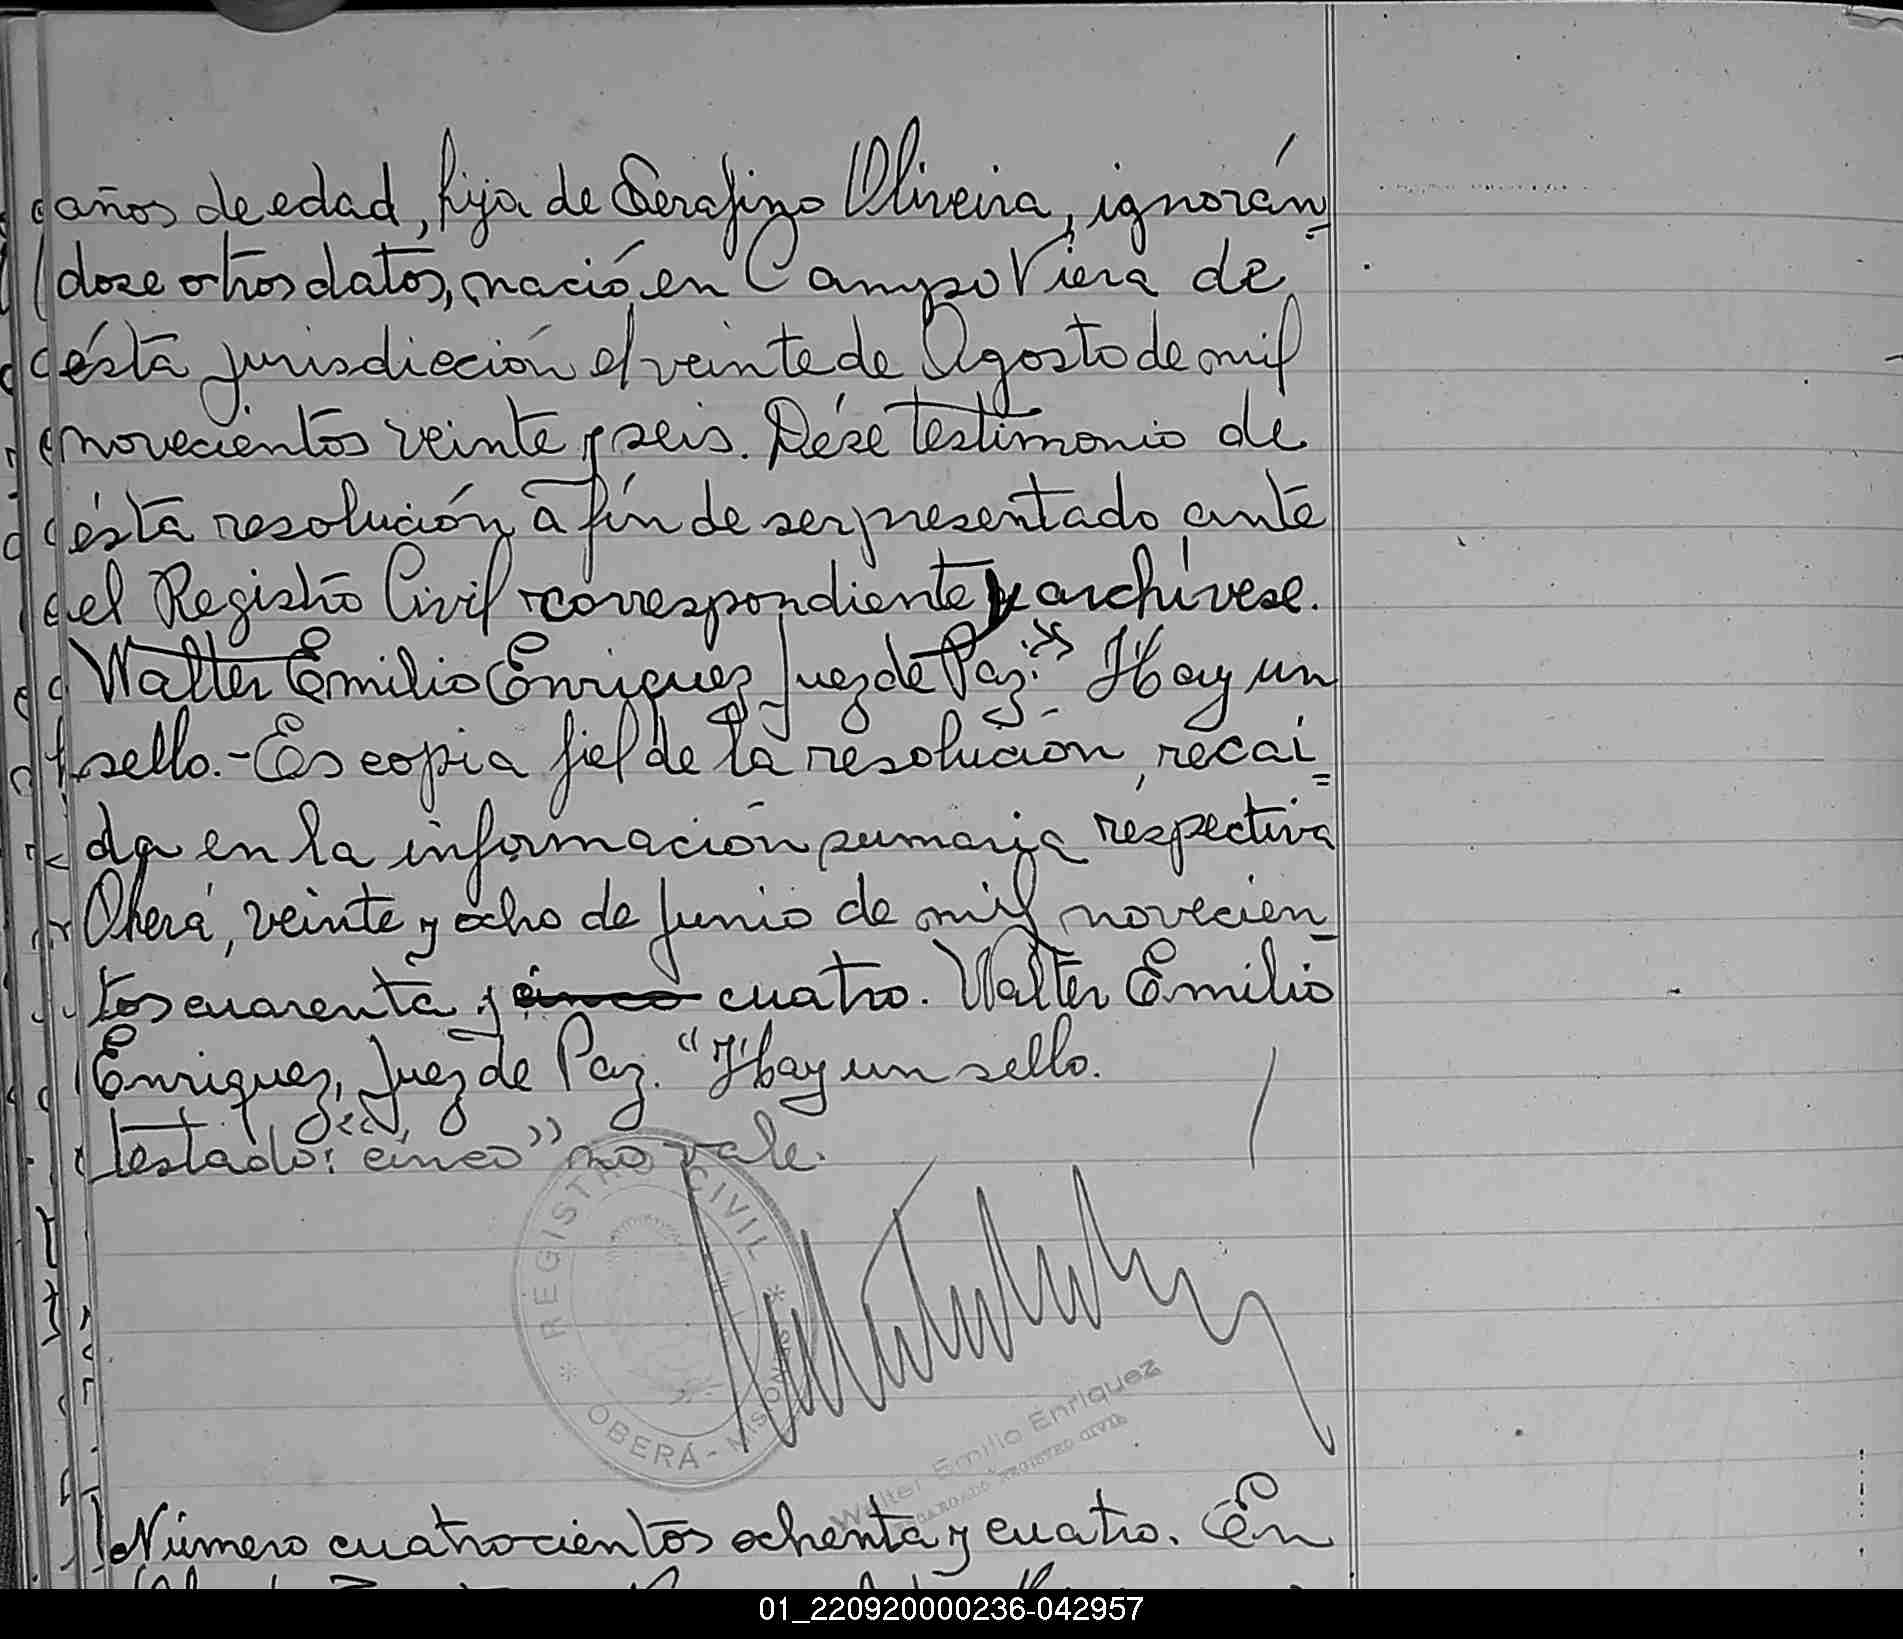 años de edad, hija de Serafino Oliveira, ignorán
dose otros datos, nació en Campo Viera de
ésta jurisdicción el veinte de Agosto de mil
novecientos veinte y seis. Dése testimonio de
ésta resolución a fín de ser presentado ante
el Registro Civil correspondiente y archívese.
Walter Emilio Enriquez Juez de Paz." Hay un
sello.- Es copia fiel de la resolución, recaí=
da en la información sumaria respectiva
Oberá, veinte y ocho de Junio de mil novecien
tos cuarenta y cinco cuatro. Walter Emilio
Enriquez, Juez de Paz. "Hay un sello.
Testado: "cinco" no vale.
REGISTRO CIVIL
OBERÁ - MISIONES
Walter Emilio Enriquez
ENCARGADO REGISTRO CIVIL
Número cuatrocientos ochenta y cuatro. En
01_220920000236-042957